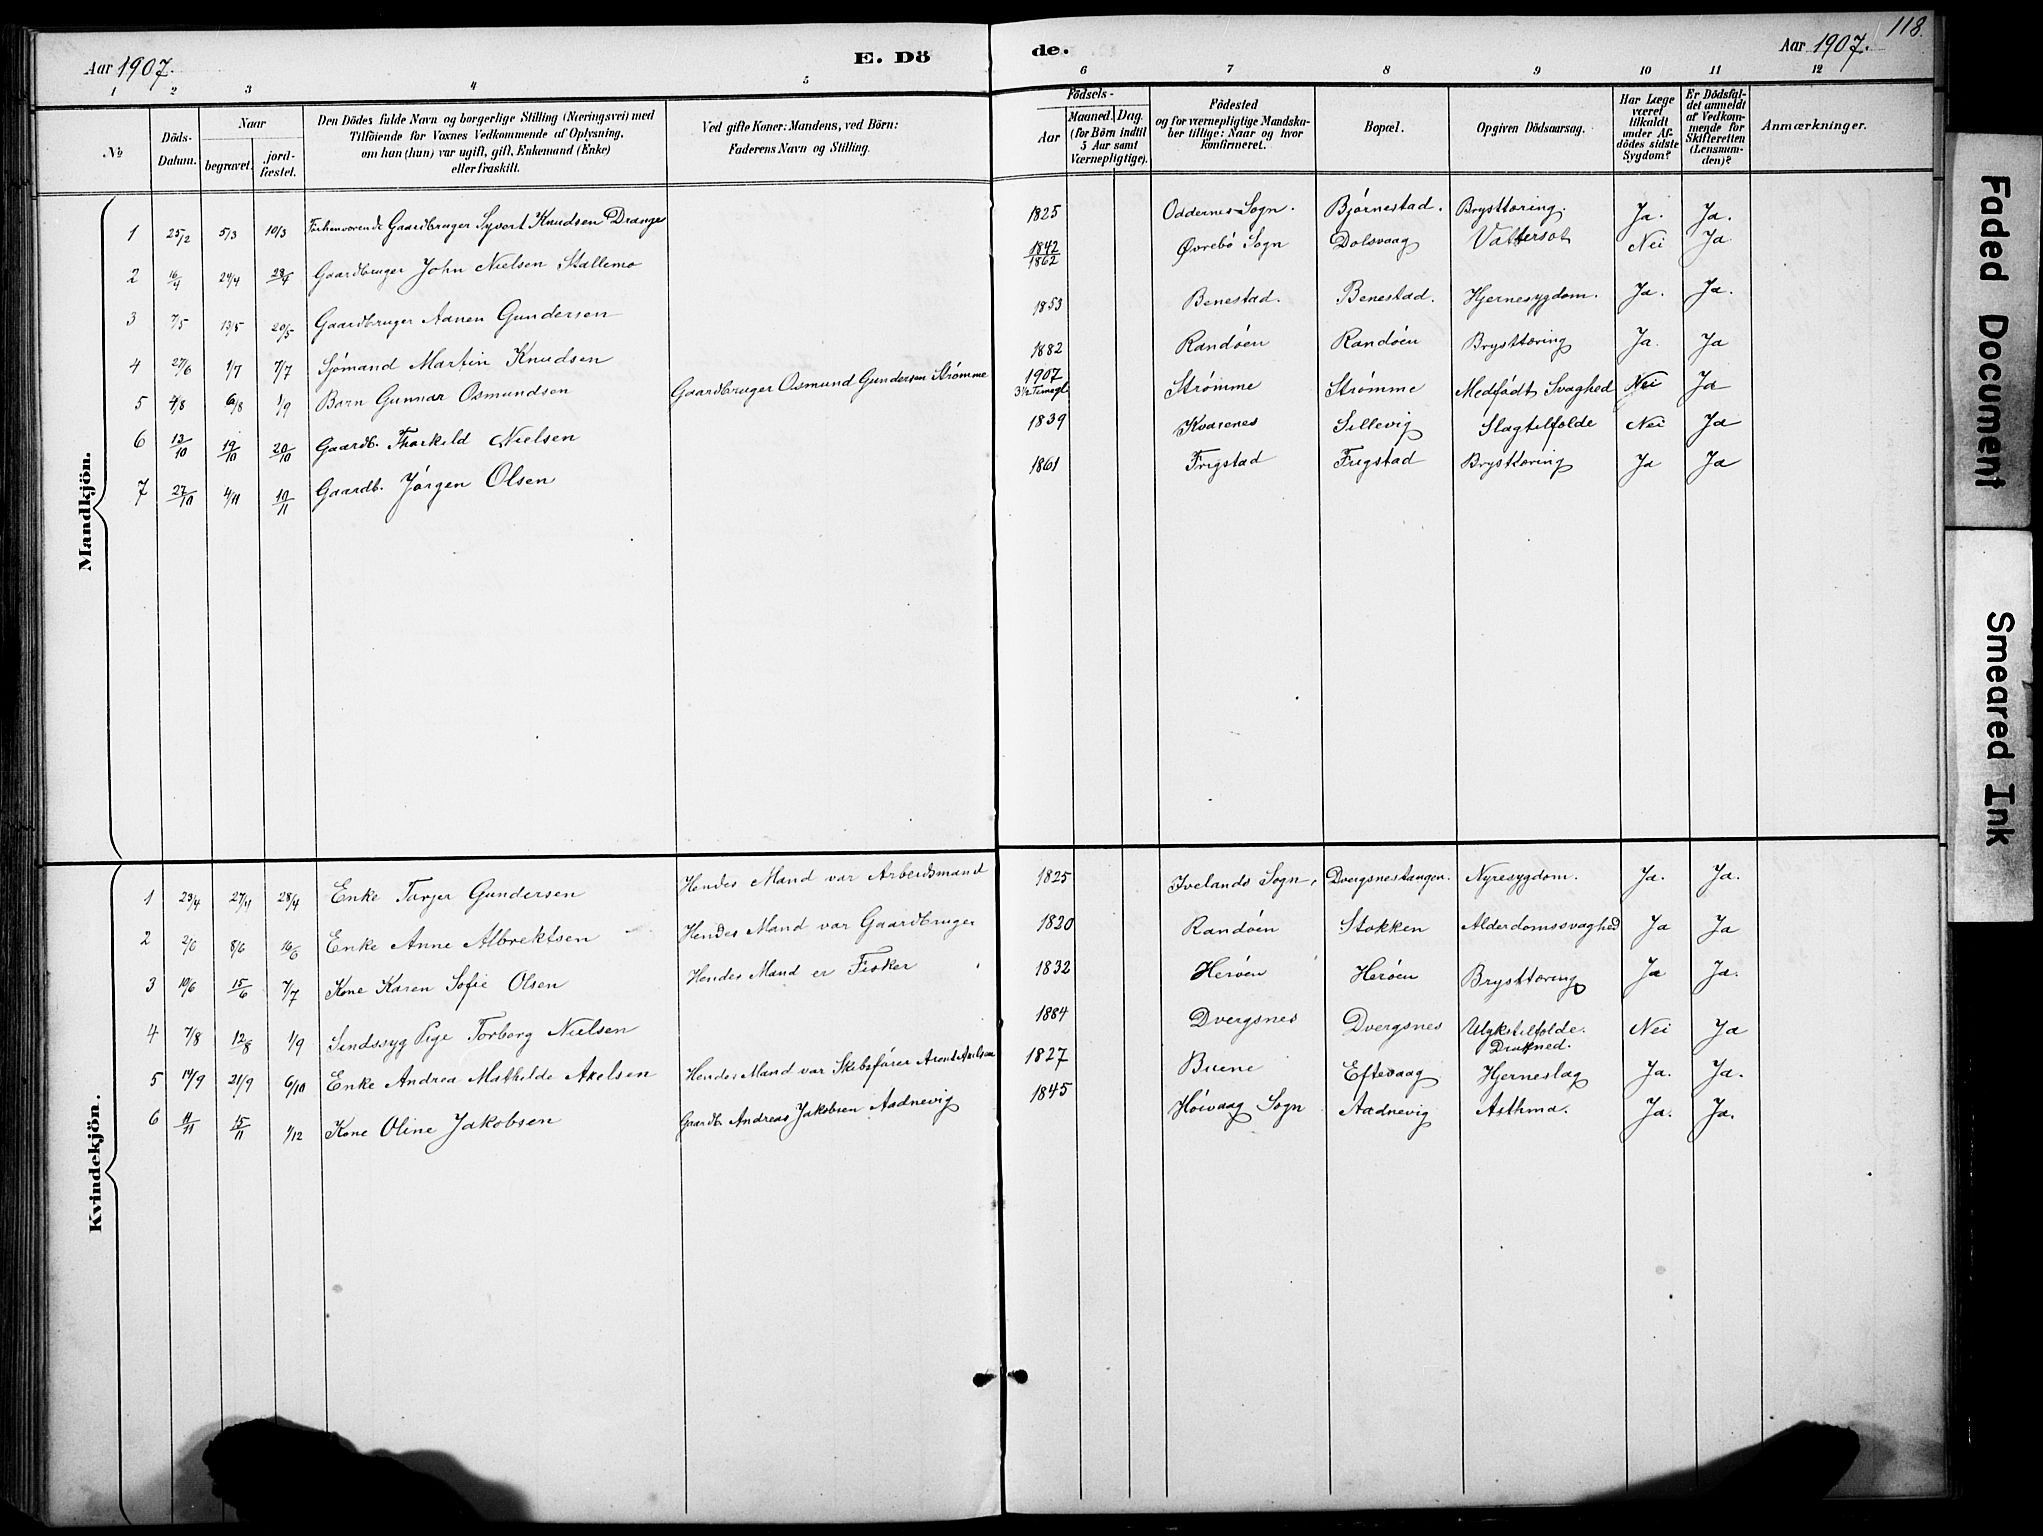 118.
Aar 1907. E. Dö de. Aar 1907.
1 2 3 4 5 6 7 8 9 10 11 12
No
Döds-Datum.
Naar
begravet. jord-fæstet.
Den Dödes fulde Navn og borgerlige Stilling (Næringsvei) med
Tilföiende for Voxnes Vedkommende af Oplysning,
om han (hun) var ugift, gift, Enkemand (Enke)
eller fraskilt.
Ved gifte Koner: Mandens, ved Börn:
Faderens Navn og Stilling.
Födsels-
Aar Maaned. Dag.
(for Börn indtil
5 Aar samt
Værnepligtige).
Födested
og for værnepligtige Mandska-
ber tillige: Naar og hvor
konfirmeret.
Bopæl.
Opgiven Dödsaarsag.
Har Læge
været
tilkaldt
under Af-
dödes sidste
Sygdom?
Er Dödsfal-
det anmeldt
af Vedkom-
mende for
Skifteretten
(Lensman-
den)?
Anmærkninger.
Mandkjön.
1 25/2 5/3 10/3 Forhenværende Gaardbruger Syvert Knudsen Drange 1825 Oddernes Sogn. Bjørnestad. Brysttæring. Ja. Ja.
2 16/4 24/4 28/4 Gaardbruger John Nielsen Stallemo 1842/1862 Øvrebö Sogn Dolsvaag Vattersot Nei Ja
3 7/5 13/5 20/5 Gaardbruger Aanen Gundersen 1853 Benestad. Benestad. Hjernesygdom. Ja. Ja.
4 27/6 1/7 7/7 Sjømand Martin Knudsen 1882 Randöen Randöen Brysttæring Ja. Ja
5 4/8 6/8 1/9 Barn Gunnar Osmundsen Gaardbruger Osmund Gundersen Strømme 1907 3½ Time gl. Strømme Strømme Medfødt Svaghed Nei Ja
6 13/10 19/10 20/10 Gaardb. Thorkild Nielsen 1839 Kvarenes Sillevig Slagtilfælde Nei Ja
7 27/10 4/11 10/11 Gaardb. Jørgen Olsen 1861 Frigstad Frigstad Brysttæring Ja Ja
Kvindekjön.
1 23/4 27/4 28/4 Enke Torjer Gundersen Hendes Mand var Arbeidsmand 1825 Ivelands Sogn, Dvergsnestangen. Nyresygdom. Ja. Ja.
2 2/6 8/6 16/6 Enke Anne Albrektsen Hendes Mand var Gaardbruger 1820 Randöen Stokken Alderdomssvaghed Ja Ja
3 10/6 15/6 7/7 Kone Karen Sofie Olsen Hendes Mand er Fisker 1832 Heröen Heröen Brysttæring Ja Ja.
4 7/8 12/8 1/9 Sindssyg Pige Torborg Nielsen 1884 Dvergsnes Dvergsnes Ulykstilfælde. Druknet. Nei Ja
5 14/9 21/9 6/10 Enke Andrea Mathilde Axelsen Hendes Mand var Skibsfører Arent Axelsen 1827 Buene Eftevaag Hjerneslag Ja. Ja.
6 11/11 15/11 1/12 Kone Oline Jakobsen Gaardb. Andreas Jakobsen Aadnevig 1845 Høivaag Sogn Aadnevig Asthma. Ja. Ja.
Faded Document
Smeared Ink